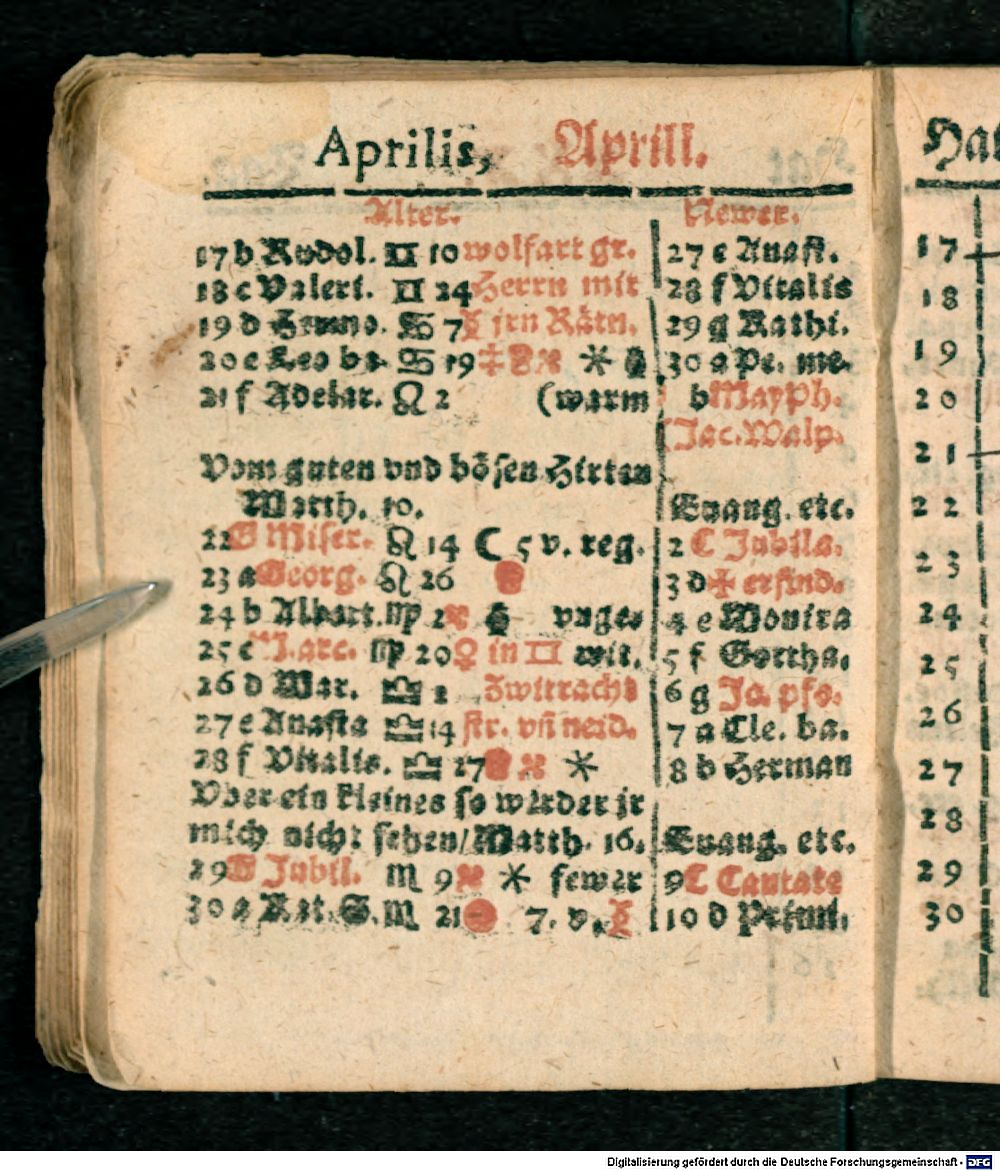 Aprilis, Aprill.
Alter. Newer.
17 b Rudol. ♊ 10 wolfart gr. 27 e Anast.
18 c Valeri. ♊ 24 Herrn mit 28 f Vitalis
19 d ♋ 7 ☿ jrn Rätn. 29 g Rathi.
20 e Leo bs. ♋ 19 30 a Pe. me.
21 f Adelar. ♌ 2 (warm b May Ph.
Jac. Walp.
Vom guten vnd bösen Hirten
Matth. 10. Euang. etc.
22 G Miser. ♌ 14 ☾ 5 v. reg. 2 C Jubila.
23 a Georg. ♌ 26 3 d ✠ erfind.
24 b Albart. ♍ 2 vnge⸗ 4 e Monica
25 c Marc. ♍ 20 ♀ in ♊ wit. 5 f Gottha.
26 d Mar. ♎ 2 Zwitracht 6 g Jo. pfo.
27 e Anasta ♎ 14 str. vñ neid. 7 a Cle. ba.
28 f Vitalis. ♎ 27 ⚹ 8 b Herman
Vber ein kleines so werdet jr
mich nicht sehen/ Matth. 16. Euang. etc.
29 G Jubil. ♏ 9 ⚹ fewer 9 C Cantate
30 a Kat. S. ♏ 21 7. v. ☿ 10 d Primi.
Hau
17
18
19
20
21
22
23
24
25
26
27
28
29
30
Digitalisierung gefördert durch die Deutsche Forschungsgemeinschaft - DFG